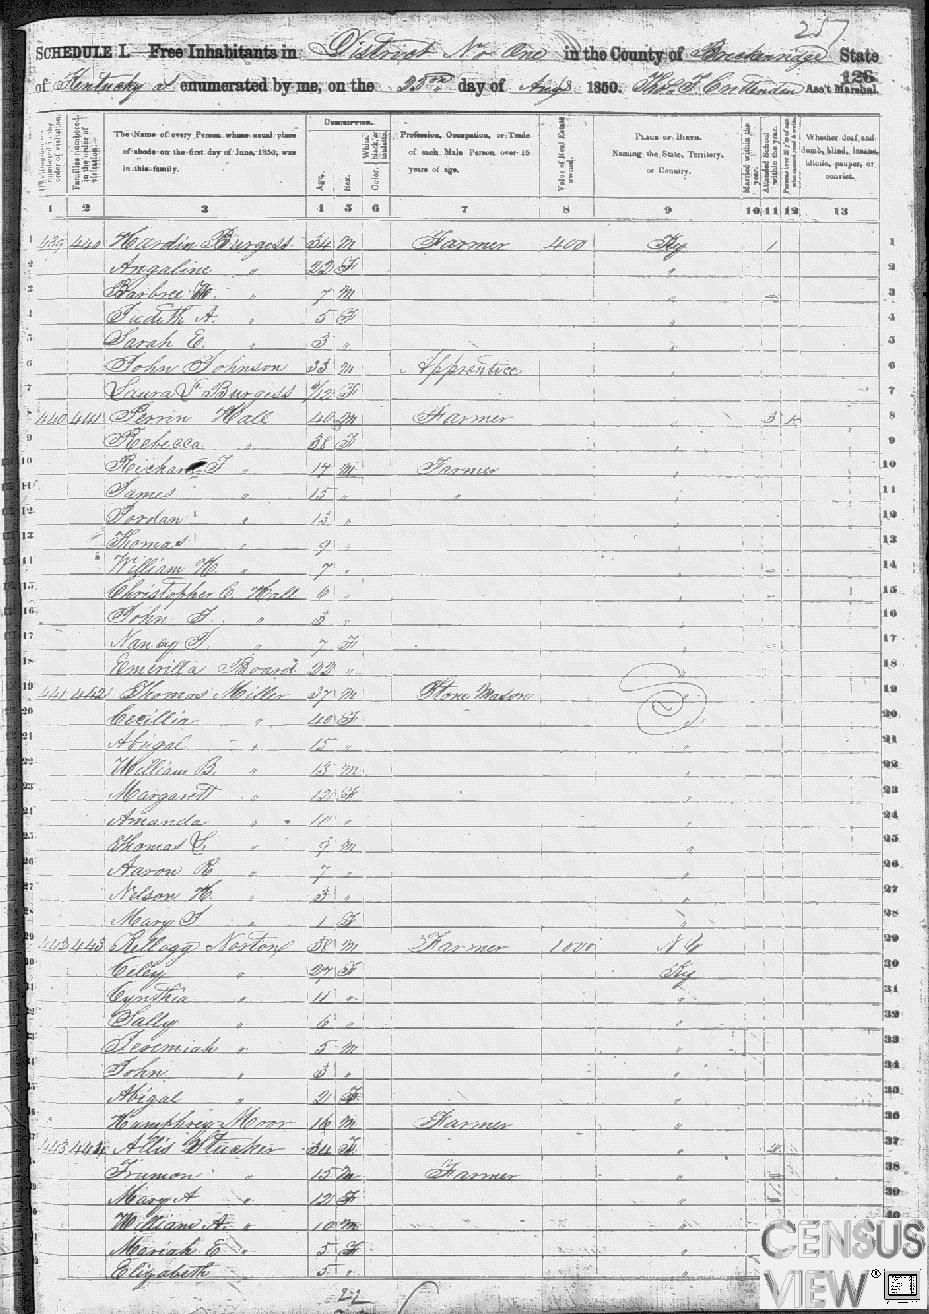 257
SCHEDULE I.—Free Inhabitants in District No One in the County of Breckenridge State
126
of Kentucky enumerated by me, on the 25th day of Aug 1850. Thos T. Crittenden Ass't Marshal.
Dwelling-houses numbered in the order of visitation.
Families numbered in the order of visitation.
The Name of every Person whose usual place of abode on the first day of June, 1850, was in this family.
DESCRIPTION.
Age.
Sex.
Color, White, black, or mulatto.
Profession, Occupation, or Trade of each Male Person over 15 years of age.
Value of Real Estate owned.
PLACE OF BIRTH. Naming the State, Territory, or Country.
Married within the year.
Attended School within the year.
Persons over 20 y'rs of age who cannot read & write.
Whether deaf and dumb, blind, insane, idiotic, pauper, or convict.
1 2 3 4 5 6 7 8 9 10 11 12 13
1 439 440 Hardin Burgess 34 M Farmer 400 Ky 1 1
2 Angaline " 22 F " 2
3 " 7 M " 3
4 Judith A. " 5 F " 4
5 Sarah E. " 3 " " 5
6 John Johnson 33 M Apprentice " 6
7 Laura Burgess /12 F " 7
8 440 441 Perrin Hall 40 M Farmer " 8
9 Rebecca " 38 F " 9
10 Richard T " 17 M Farmer " 10
11 James " 15 " " " 11
12 Jordan " 13 " " 12
13 Thomas " 9 " " 13
14 William H " 7 " " 14
15 Christopher C. Hall 6 " " 15
16 John T. " 3 " " 16
17 Nancy J. " 7 F " 17
18 Emerilla Board 22 " " 18
19 441 442 Thomas Miller 37 M Stone Mason " 19
20 Cecillia " 40 F " 20
21 Abigal " 15 " " 21
22 William B. " 13 M " 22
23 Margarett " 12 F " 23
24 Amanda " 10 " " 24
25 Thomas C. " 9 M " 25
26 Aaron R " 7 " " 26
27 Nelson H. " 3 " " 27
28 Mary J " 1 F " 28
29 442 443 Kellogg Norton 38 M Farmer 1000 N Y 29
30 Ciley " 27 F Ky 30
31 Cynthia " 11 " " 31
32 Sally " 6 " " 32
33 Jeremiah " 5 M " 33
34 John " 3 " " 34
35 Abigal " 2 F " 35
36 Humphrey Moor 16 M Farmer " 36
37 443 444 Allis Stucker 34 F " 37
38 Trumon " 15 M Farmer " 38
39 Mary A " 12 F " 39
40 William A. " 10 M "
Mariah E " 5 F "
Elizabeth 5 " "
22
CENSUS
VIEW®